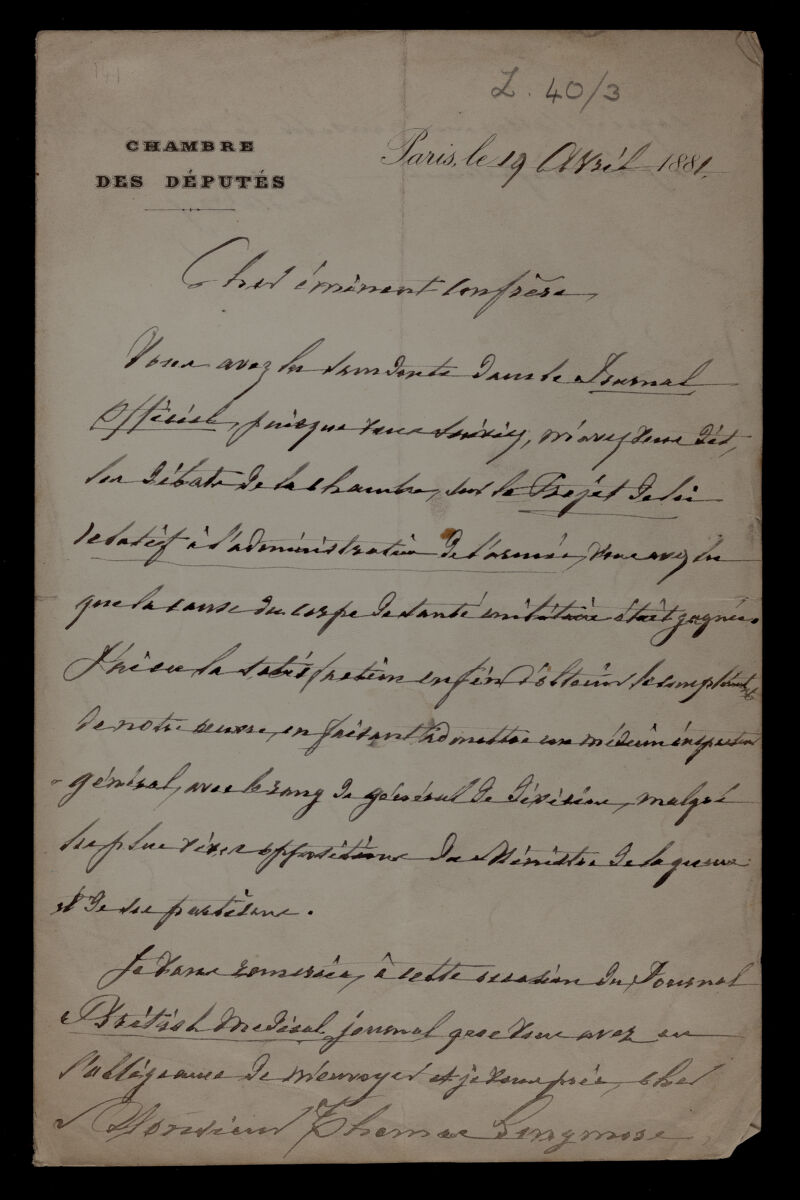 141
Z. 40/3
CHAMBRE
DES DÉPUTÉS
Paris, le 19 Avril 1881.
Cher éminent confrère
Vous avez lu sans doute dans le Journal
Officiel, puisque vous suivez, m'avez vous dit,
les débats de la Chambre, sur le Projet de loi
relatif à l'administration de l'armée, vous avez lu
que la cause du corps de santé militaire était gagnée.
J'ai eu la satisfaction enfin d'obtenir le complément
de notre œuvre, en faisant admettre un médecin inspecteur
général, avec le rang de général de division, malgré
les plus vives oppositions du Ministre de la guerre
et de ses partisans.
Je vous remercie, à cette occasion du Journal
British Medical journal que vous avez eu
l'obligeance de m'envoyer et je vous prie, cher
Monsieur Thomas Longmore,